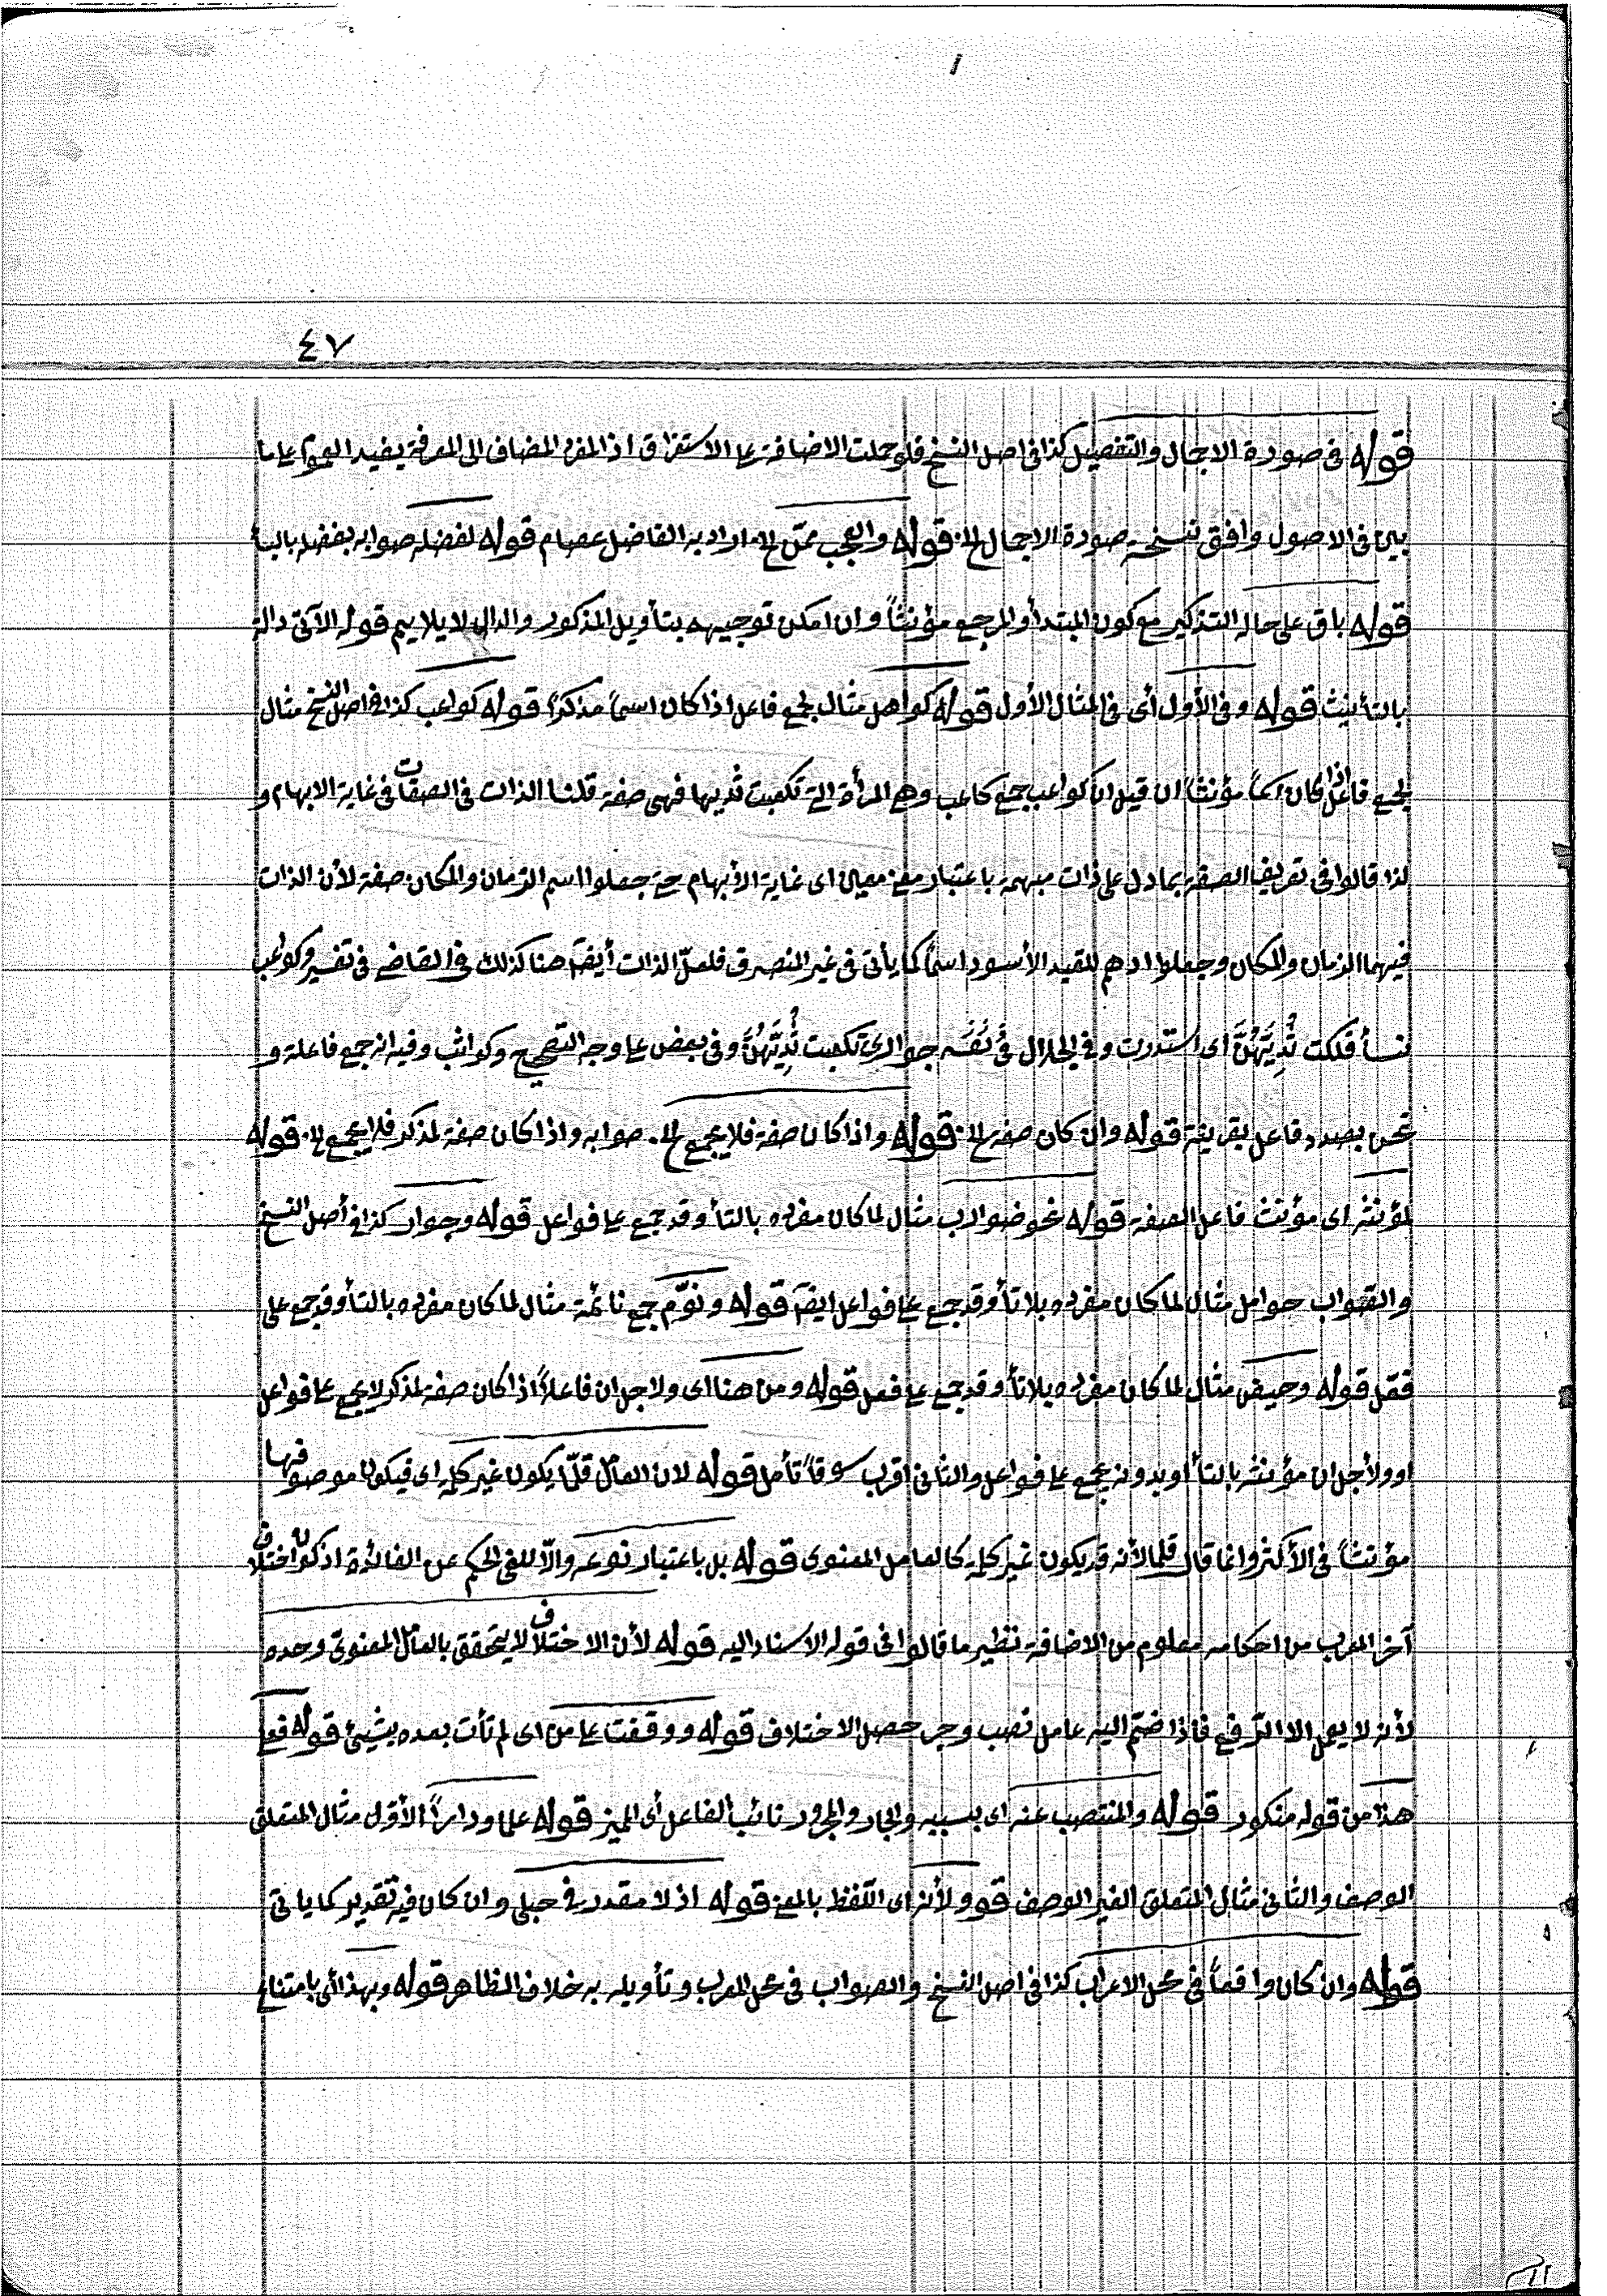 ٤٧
قوله فى صورة الاجمال والتفصيل كذا فى اصل النسخ فلو حملت الاضافة على الاستغراق اذ المفرد المضاف الى المعرفة يفيد العموم على ما
بين فى الاصول وافق نسخة صورة الاجمال الخ قوله والعجب ممّن الخ اراد به الفاضل عصام قوله لفضله صوابه بفضله بالباء
قوله باق على حاله التذكير مع كون المبتدأ والمرجع مؤنثاً وان امكن توجيهه بتأويل المذكور والدال لا يلايم قوله الآتى دالة
بالتأنيث قوله وفى الأول أى فى المثال الأول قوله كواهل مثال لجمع فاعل اذا كان اسماً مذكراً قوله كواعب كذا فى اصل النسخ مثال
لجمع فاعل اذا كان اسماً مؤنثاً ان قيل ان كواعب جمع كاعب وهى المرأة التى تكعبت ثديها فهى صفة قلنا الذات فى الصفات فى غاية الابهام و
لذا قالوا فى تعريف الصفة بما دل على ذات مبهمة باعتبار معنى معين اى غاية الأبهام حتى جعلوا اسم الزمان والمكان صفة لأن الذات
فيهما الزمان والمكان وجعلوا ادهم للقيد الأسود اسماً كما يأتى فى غير المنصرف فلعلّ الذات أيضاً هنا كذلك فى القاضى فى تفسير وكواعب
نسأ فلكت ثُدِيَّهُنَّ اى استدرت وفى الجلال فى نفسه جوارى تكعبت ثُدِيَّهُنَّ وفى بعض على وجه التصحيح وكواثب وفيه انه جمع فاعلة و
نحن بصدد فاعل بقرينة قوله وان كان صفة الخ قوله واذا كان صفة فلا يجمع الخ صوابه واذا كان صفة لمذكر فلا يجمع الخ قوله
لمؤنثه اى مؤنث فاعل الصفة قوله نحو ضوارب مثال لما كان مفرده بالتأ وقد جمع على فواعل قوله وجوار كذا فى أصل النسخ
والصّواب حوامل مثال لما كان مفرده بلا تأ وقد جمع على فواعل ايضاً قوله ونوّم جمع نائمة مثال لما كان مفرده بالتأ وقد جمع على
فعّل قوله وحيض مثال لما كان مفرده بلا تأ وقد جمع على فعل قوله ومن هنا اى ولاجل ان فاعلاً اذا كان صفة لمذكر لا يجمع على فواعل
او ولأجل ان مؤنثه بالتأ او بدونه يجمع على فواعل والثانى اقرب سوقاً تأمل قوله لان العامل قلّما يكون غير كلمة اى فيكون موصوفها
مؤنثاً فى الأكثر وانما قال قلما لأنه قد يكون غير كلمة كالعامل المعنوى قوله بل باعتبار نوعه والاّ للغى الحكم عن الفائدة اذ كون اختلاف
آخر المعرب من احكامه معلوم من الاضافة نظير ما قالوا فى قوله الاسناد اليه قوله لأن الاختلاف لا يتحقق بالعامل المعنوى وحده
لأنه لا يعمل الا الرّفع فاذا ضمّ اليه عامل نصب وجر حصل الاختلاف قوله ووقفت على من اى لم تأت بعده بشيئ قوله فعلى
هذا من قوله منكور قوله والمنتصب عنه اى بسببه والجار والمجرور نائب الفاعل أى المميز قوله علما ودارا الأول مثال المتعلق
الوصف والثانى مثال المتعلق الغير الوصف قو ولأنه اى التلفظ بالمعنى قوله اذ لا مقدر فى حبلى وان كان فيه تقدير كما ياتى
قوله وان كان واقعاً فى محل الاعراب كذا فى اصل النسخ والصواب فى محل المعرب وتأويله به خلاف الظاهر قوله وبهذا أى بامتناع